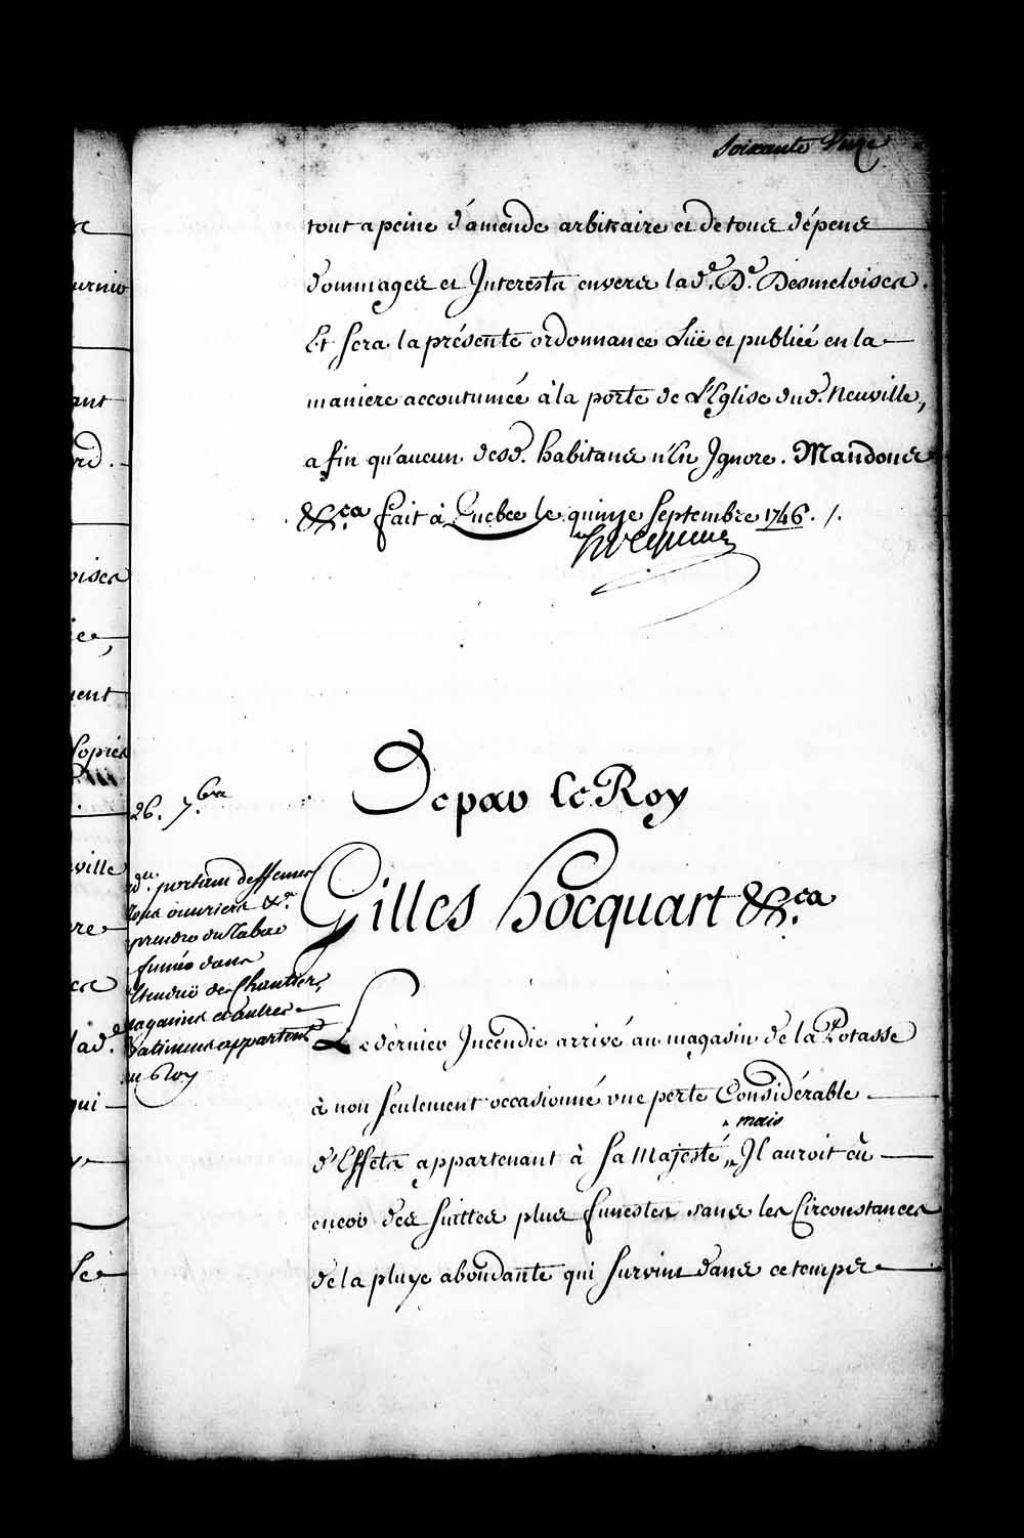 Soixante Onze
tout a peine d'amende arbitraire et de tous dépens
dommages et Interests envers lad.e D.e Desmeloises.
Et sera la présente ordonnance Lüe et publiée en la
maniere accoutumée à la porte de L'Eglise dud. Neuville,
afin qu'aucun desd. habitans n'En Ignore. Mandons
&c.a fait à Quebec le quinze Septembre 1746. /.
Hocquart
De par le Roy
26. 7.bre
Gilles hocquart &c.a
du. portant deffenses
tous ouvriers &.a
prendre du tabac
fumée dans
de Chantiers,
magasins et autres
batimens appartens
au Roy
Le dernier Incendie arrivé au magasin de la Potasse
à non seulement occasionné vne perte Considérable
d'Effets appartenant à Sa Majesté, mais Il auroit eû
encor des suittes plus funestes sans les Circonstances
de la pluye abondante qui survint dans ce temps